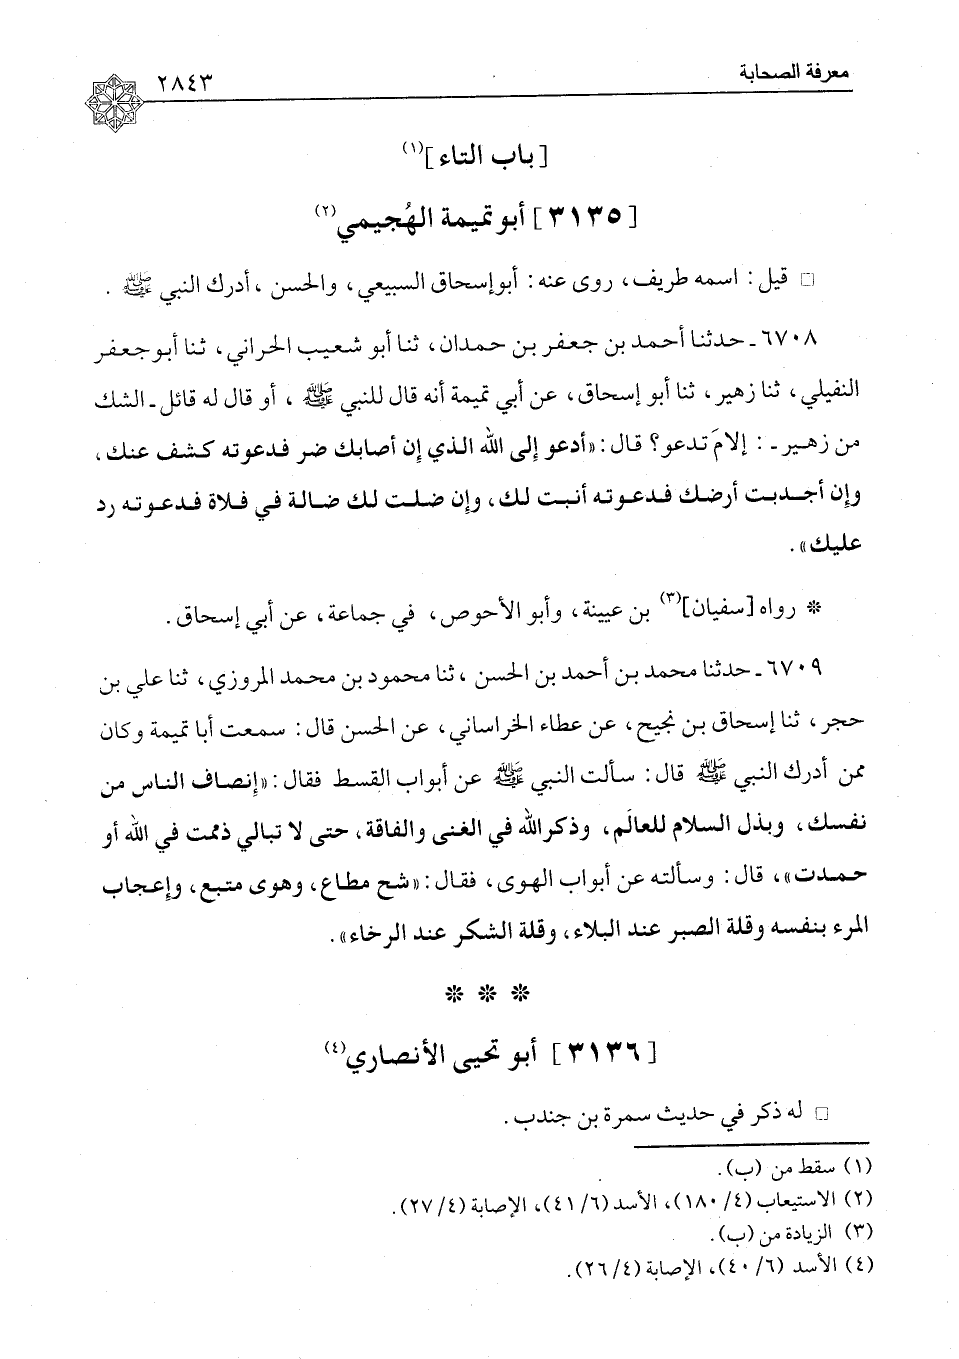 معرفة الصحابة
٢٨٤٣
[باب التاء](١)
[٣١٣٥] أبو تميمة الهُجيمي(٢)
□ قيل: اسمه طريف، روى عنه: أبو إسحاق السبيعي، والحسن، أدرك النبي ﷺ.
٦٧٠٨ ـ حدثنا أحمد بن جعفر بن حمدان، ثنا أبو شعيب الحراني، ثنا أبو جعفر
النفيلي، ثنا زهير، ثنا أبو إسحاق، عن أبي تميمة أنه قال للنبي ﷺ، أو قال له قائل ـ الشك
من زهير ـ : إلامَ تدعو؟ قال: «أدعو إلى الله الذي إن أصابك ضر فدعوته كشف عنك،
وإن أجدبت أرضك فدعوته أنبت لك، وإن ضلت لك ضالة في فلاة فدعوته رد
عليك».
* رواه [سفيان](٣) بن عيينة، وأبو الأحوص، في جماعة، عن أبي إسحاق.
٦٧٠٩ ـ حدثنا محمد بن أحمد بن الحسن، ثنا محمود بن محمد المروزي، ثنا علي بن
حجر، ثنا إسحاق بن نجيح، عن عطاء الخراساني، عن الحسن قال: سمعت أبا تميمة وكان
ممن أدرك النبي ﷺ قال: سألت النبي ﷺ عن أبواب القسط فقال: «إنصاف الناس من
نفسك، وبذل السلام للعالَم، وذكر الله في الغنى والفاقة، حتى لا تبالي ذممت في الله أو
حمدت»، قال: وسألته عن أبواب الهوى، فقال: «شح مطاع، وهوى متبع، وإعجاب
المرء بنفسه وقلة الصبر عند البلاء، وقلة الشكر عند الرخاء».
* * *
[٣١٣٦] أبو تحيى الأنصاري(٤)
□ له ذكر في حديث سمرة بن جندب.
(١) سقط من (ب).
(٢) الاستيعاب (٤/ ١٨٠)، الأسد (٦/ ٤١)، الإصابة (٤/ ٢٧).
(٣) الزيادة من (ب).
(٤) الأسد (٦/ ٤٠)، الإصابة (٤/ ٢٦).